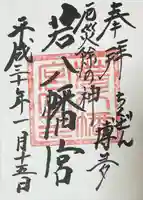 奉拝
ちくぜん
博多
厄災除の神
若八幡宮
平成二十年一月十五日